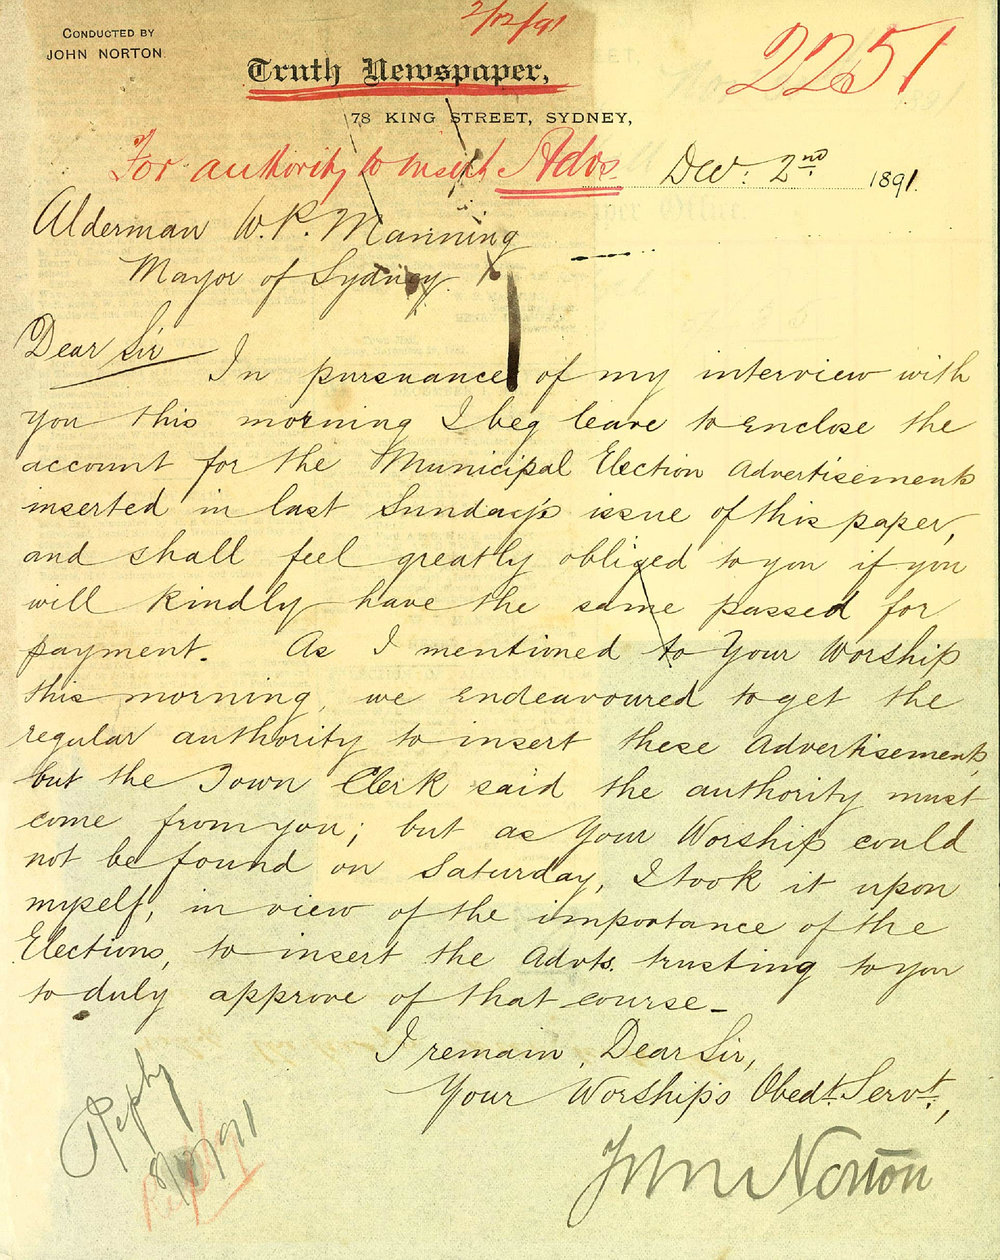 2/12/91
2251
CONDUCTED BY
JOHN NORTON
Truth Newspaper,
78 KING STREET, SYDNEY,
For authority to insert Advs.
Dec: 2nd 1891.
Alderman W. P. Manning
Mayor of Sydney.
Dear Sir
In pursuance of my interview with
you this morning I beg leave to enclose the
account for the Municipal Election Advertisements
inserted in last Sunday's issue of this paper,
and shall feel greatly obliged to you if you
will kindly have the same passed for
payment. As I mentioned to Your Worship
this morning, we endeavoured to get the
regular authority to insert these Advertisements,
but the Town Clerk said the authority must
come from you; but as Your Worship could
not be found on Saturday, I took it upon
myself, in view of the importance of the
Elections, to insert the Advts. trusting to you
to duly approve of that course_
I remain, Dear Sir,
Your Worship's Obedt. Servt.,
John Norton
Reply
8/12/91
Reply